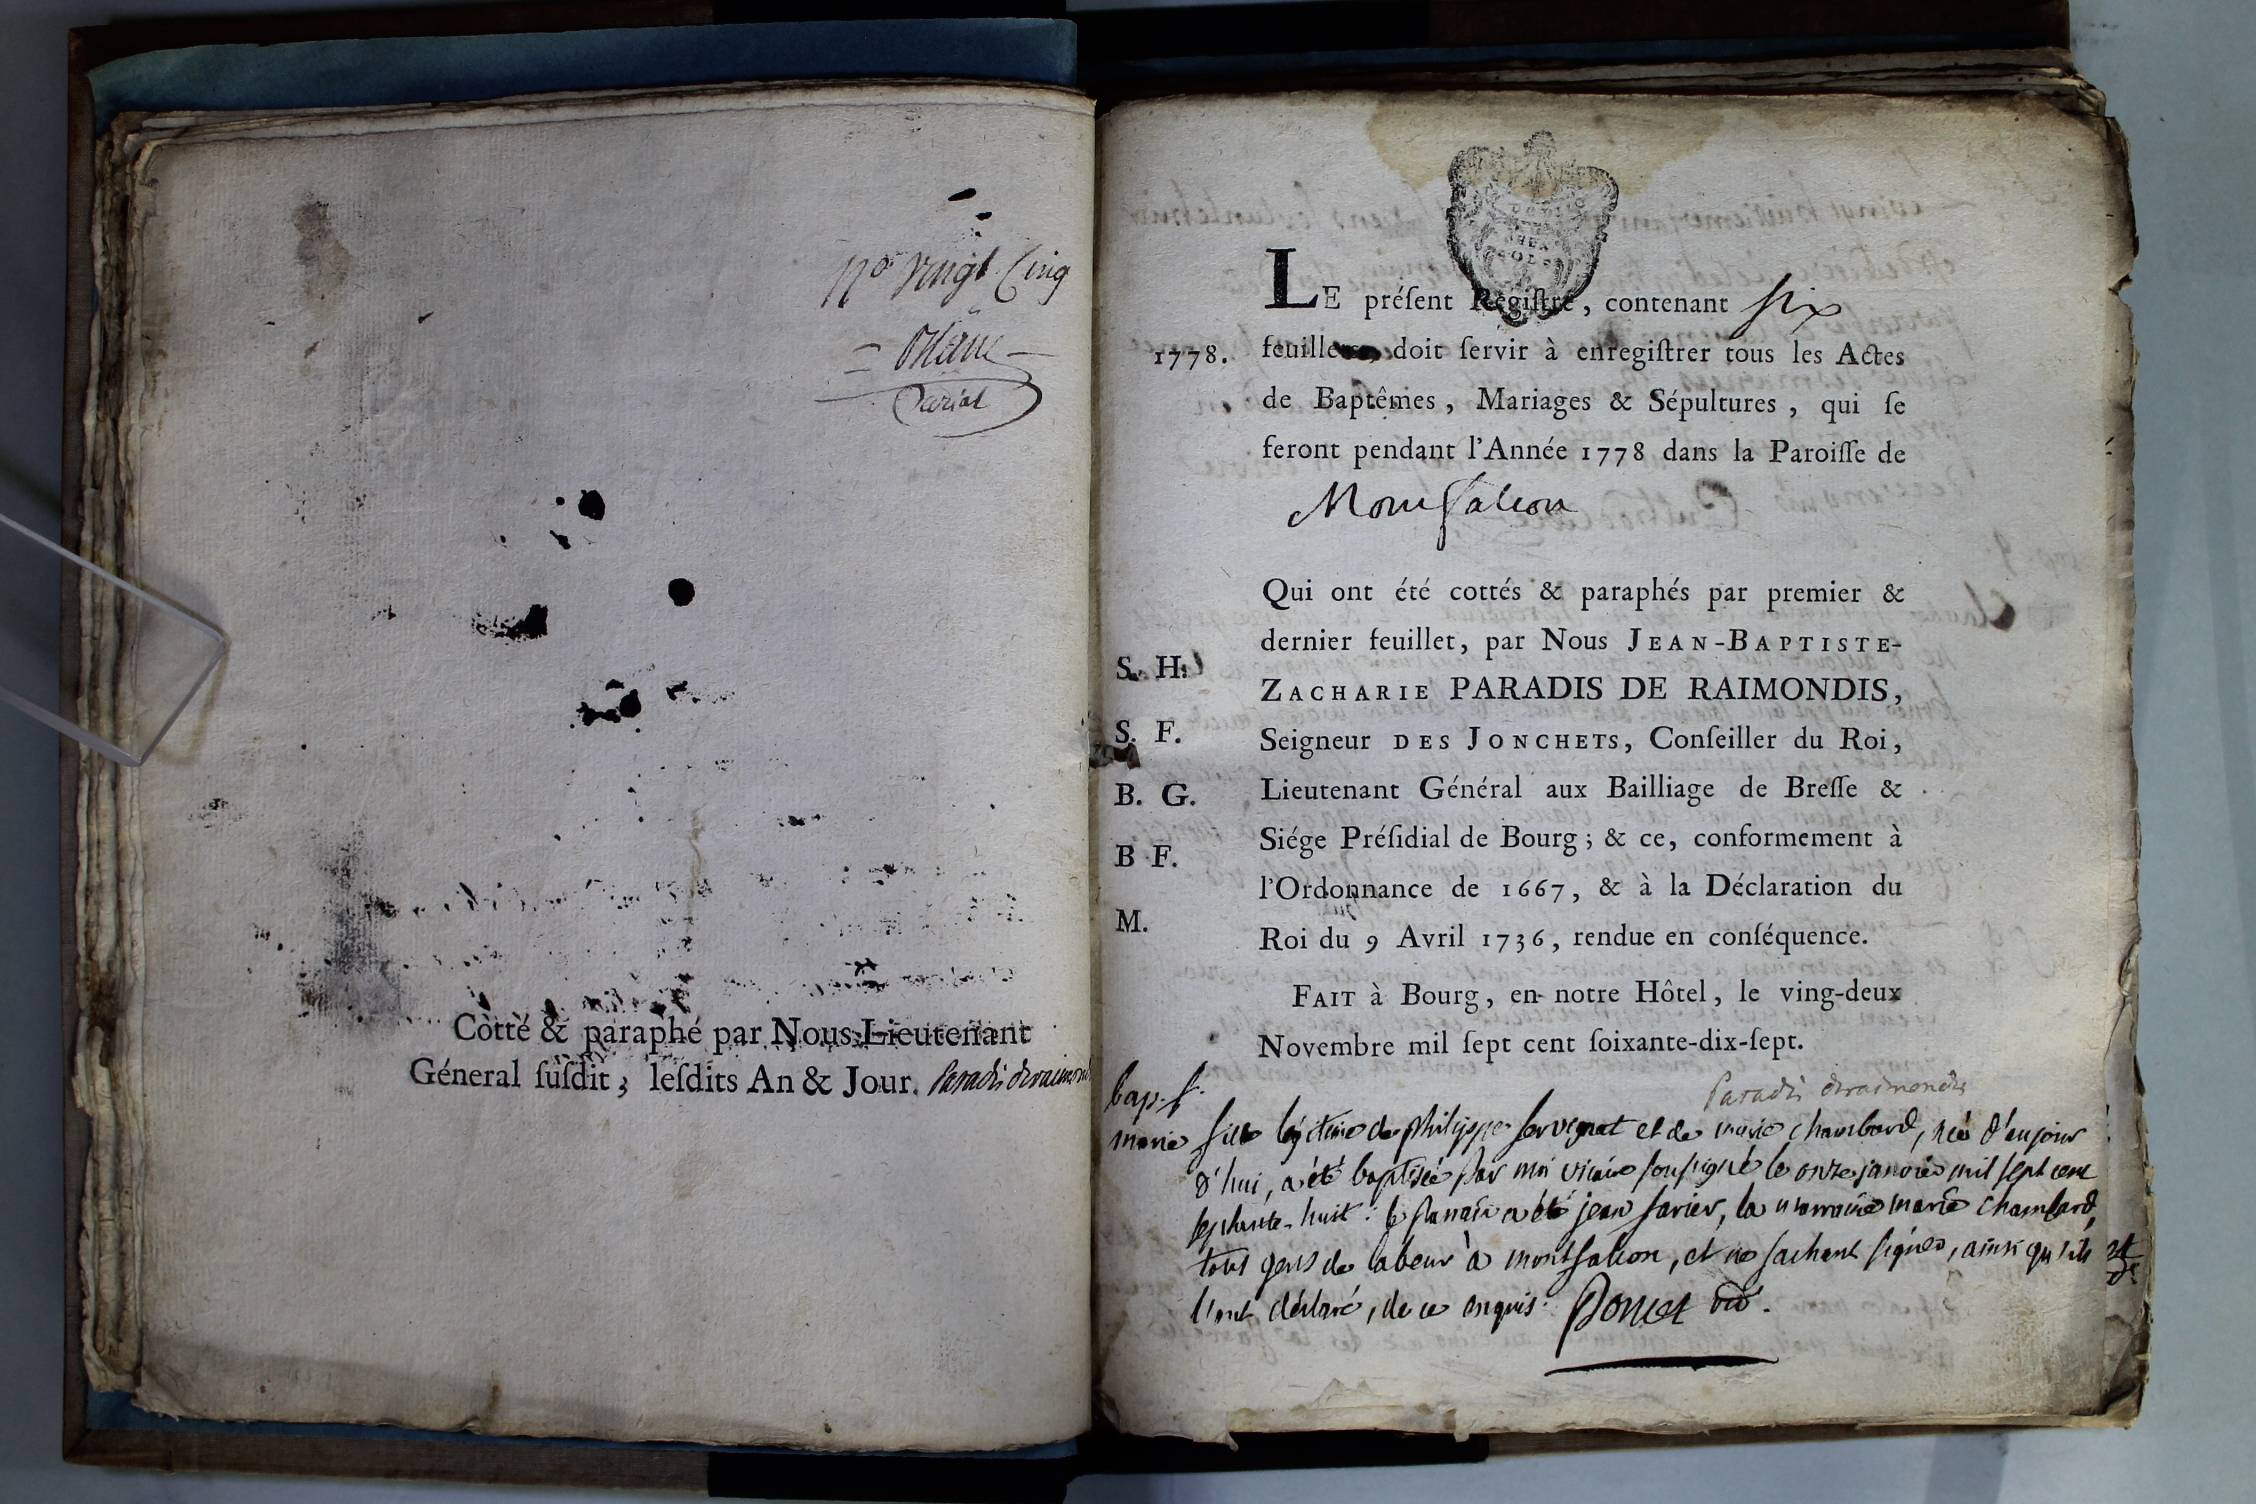 no vingt Cinq
Cotté & paraphé par Nous Lieutenant
Géneral ſuſdit, leſdits An & Jour. Paradis deraimondis
LE préſent Regiſtre, contenant six
1778. feuillets, doit ſervir à enregiſtrer tous les Actes
de Baptêmes, Mariages & Sépultures, qui ſe
feront pendant l'Année 1778 dans la Paroiſſe de
Montſalion
Qui ont été cottés & paraphés par premier &
dernier feuillet, par Nous JEAN-BAPTISTE-
S. H. ZACHARIE PARADIS DE RAIMONDIS,
S. F. Seigneur DES JONCHETS, Conſeiller du Roi,
B. G. Lieutenant Général aux Bailliage de Breſſe &
B F. Siége Préſidial de Bourg; & ce, conformement à
l'Ordonnance de 1667, & à la Déclaration du
M. Roi du 9 Avril 1736, rendue en conſéquence.
FAIT à Bourg, en notre Hôtel, le ving-deux
Novembre mil ſept cent ſoixante-dix-ſept.
Paradis deraimondis
bap. f.
marie fille légitime de philippe servignat et de marie chambard, née d'aujour
d'hui, a été baptisée par moi vicaire soussigné le onze janvier mil sept cent
septante-huit: le parrain a été jean farier, la marraine marie chambard,
tous gens de labeur à montsalion, et ne sachant signer, ainsi qu'ils
l'ont déclaré, de ce enquis. Poncet vic.